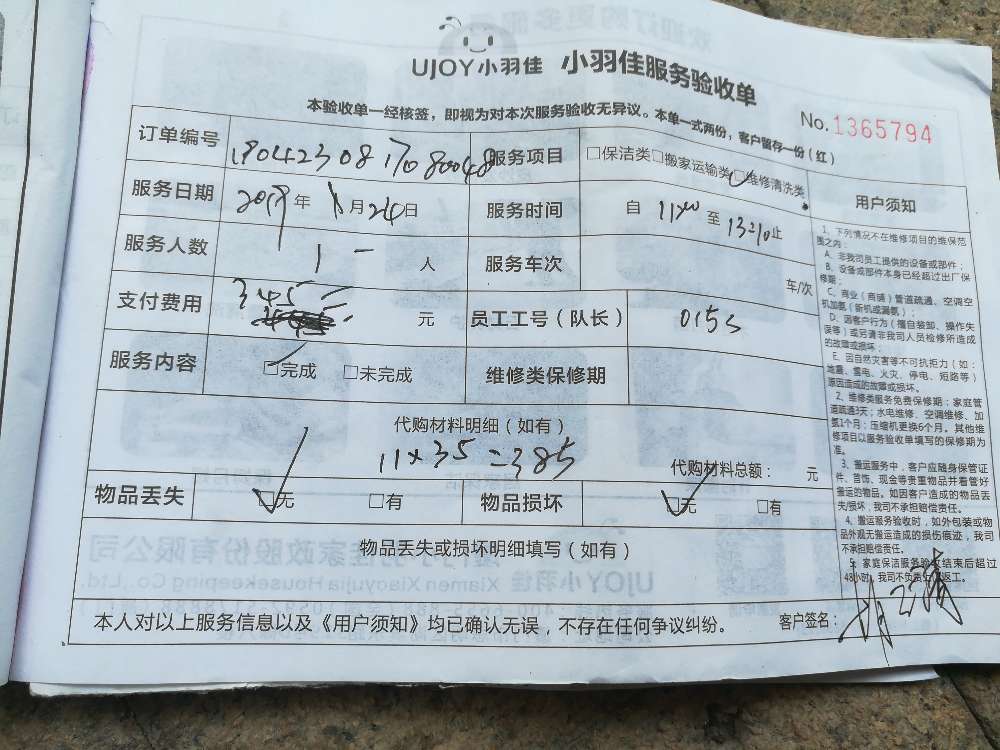 UJOY小羽佳 小羽佳服务验收单
本验收单一经核签，即视为对本次服务验收无异议。本单一式两份，客户留存一份（红）
No.1365794
订单编号 1904230817080048 服务项目 □保洁类 □搬家运输类 □维修清洗类
服务日期 年 月24日 服务时间 自 至 止
服务人数 1 人 服务车次 车/次
支付费用 345 元 员工工号（队长） 0153
服务内容 □完成 □未完成 维修类保修期
代购材料明细（如有）
11×35=385 代购材料总额： 元
物品丢失 □无 □有 物品损坏 □无 □有
物品丢失或损坏明细填写（如有）
本人对以上服务信息以及《用户须知》均已确认无误，不存在任何争议纠纷。 客户签名：
用户须知
1、下列情况不在维修项目的维保范
围之内：
A、非我司员工提供的设备或部件；
B、设备或部件本身已经超过出厂保
修期；
C、商业（商铺）管道疏通、空调空
机加氨（新机或漏氨）；
D、因客户行为（擅自装卸、操作失
误等）或另请非我司人员检修所造成
的故障或损坏；
E、因自然灾害等不可抗拒力（如：
地震、雷电、火灾、停电、短路等）
原因造成的故障或损坏。
2、维修类服务免费保修期：家庭管
道疏通3天；水电维修、空调维修、加
氨1个月；压缩机更换6个月。其他维
修项目以服务验收单填写的保修期为
准。
3、搬运服务中，客户应随身保管证
件、首饰、现金等贵重物品并看管好
搬运的物品。如因客户造成的物品丢
失/损坏，我司不承担赔偿责任。
4、搬运服务验收时，如外包装或物
品外观无搬运造成的损伤痕迹，我司
不承担赔偿责任。
5、家庭保洁服务验收结束后超过
48小时，我司不负责 返工。